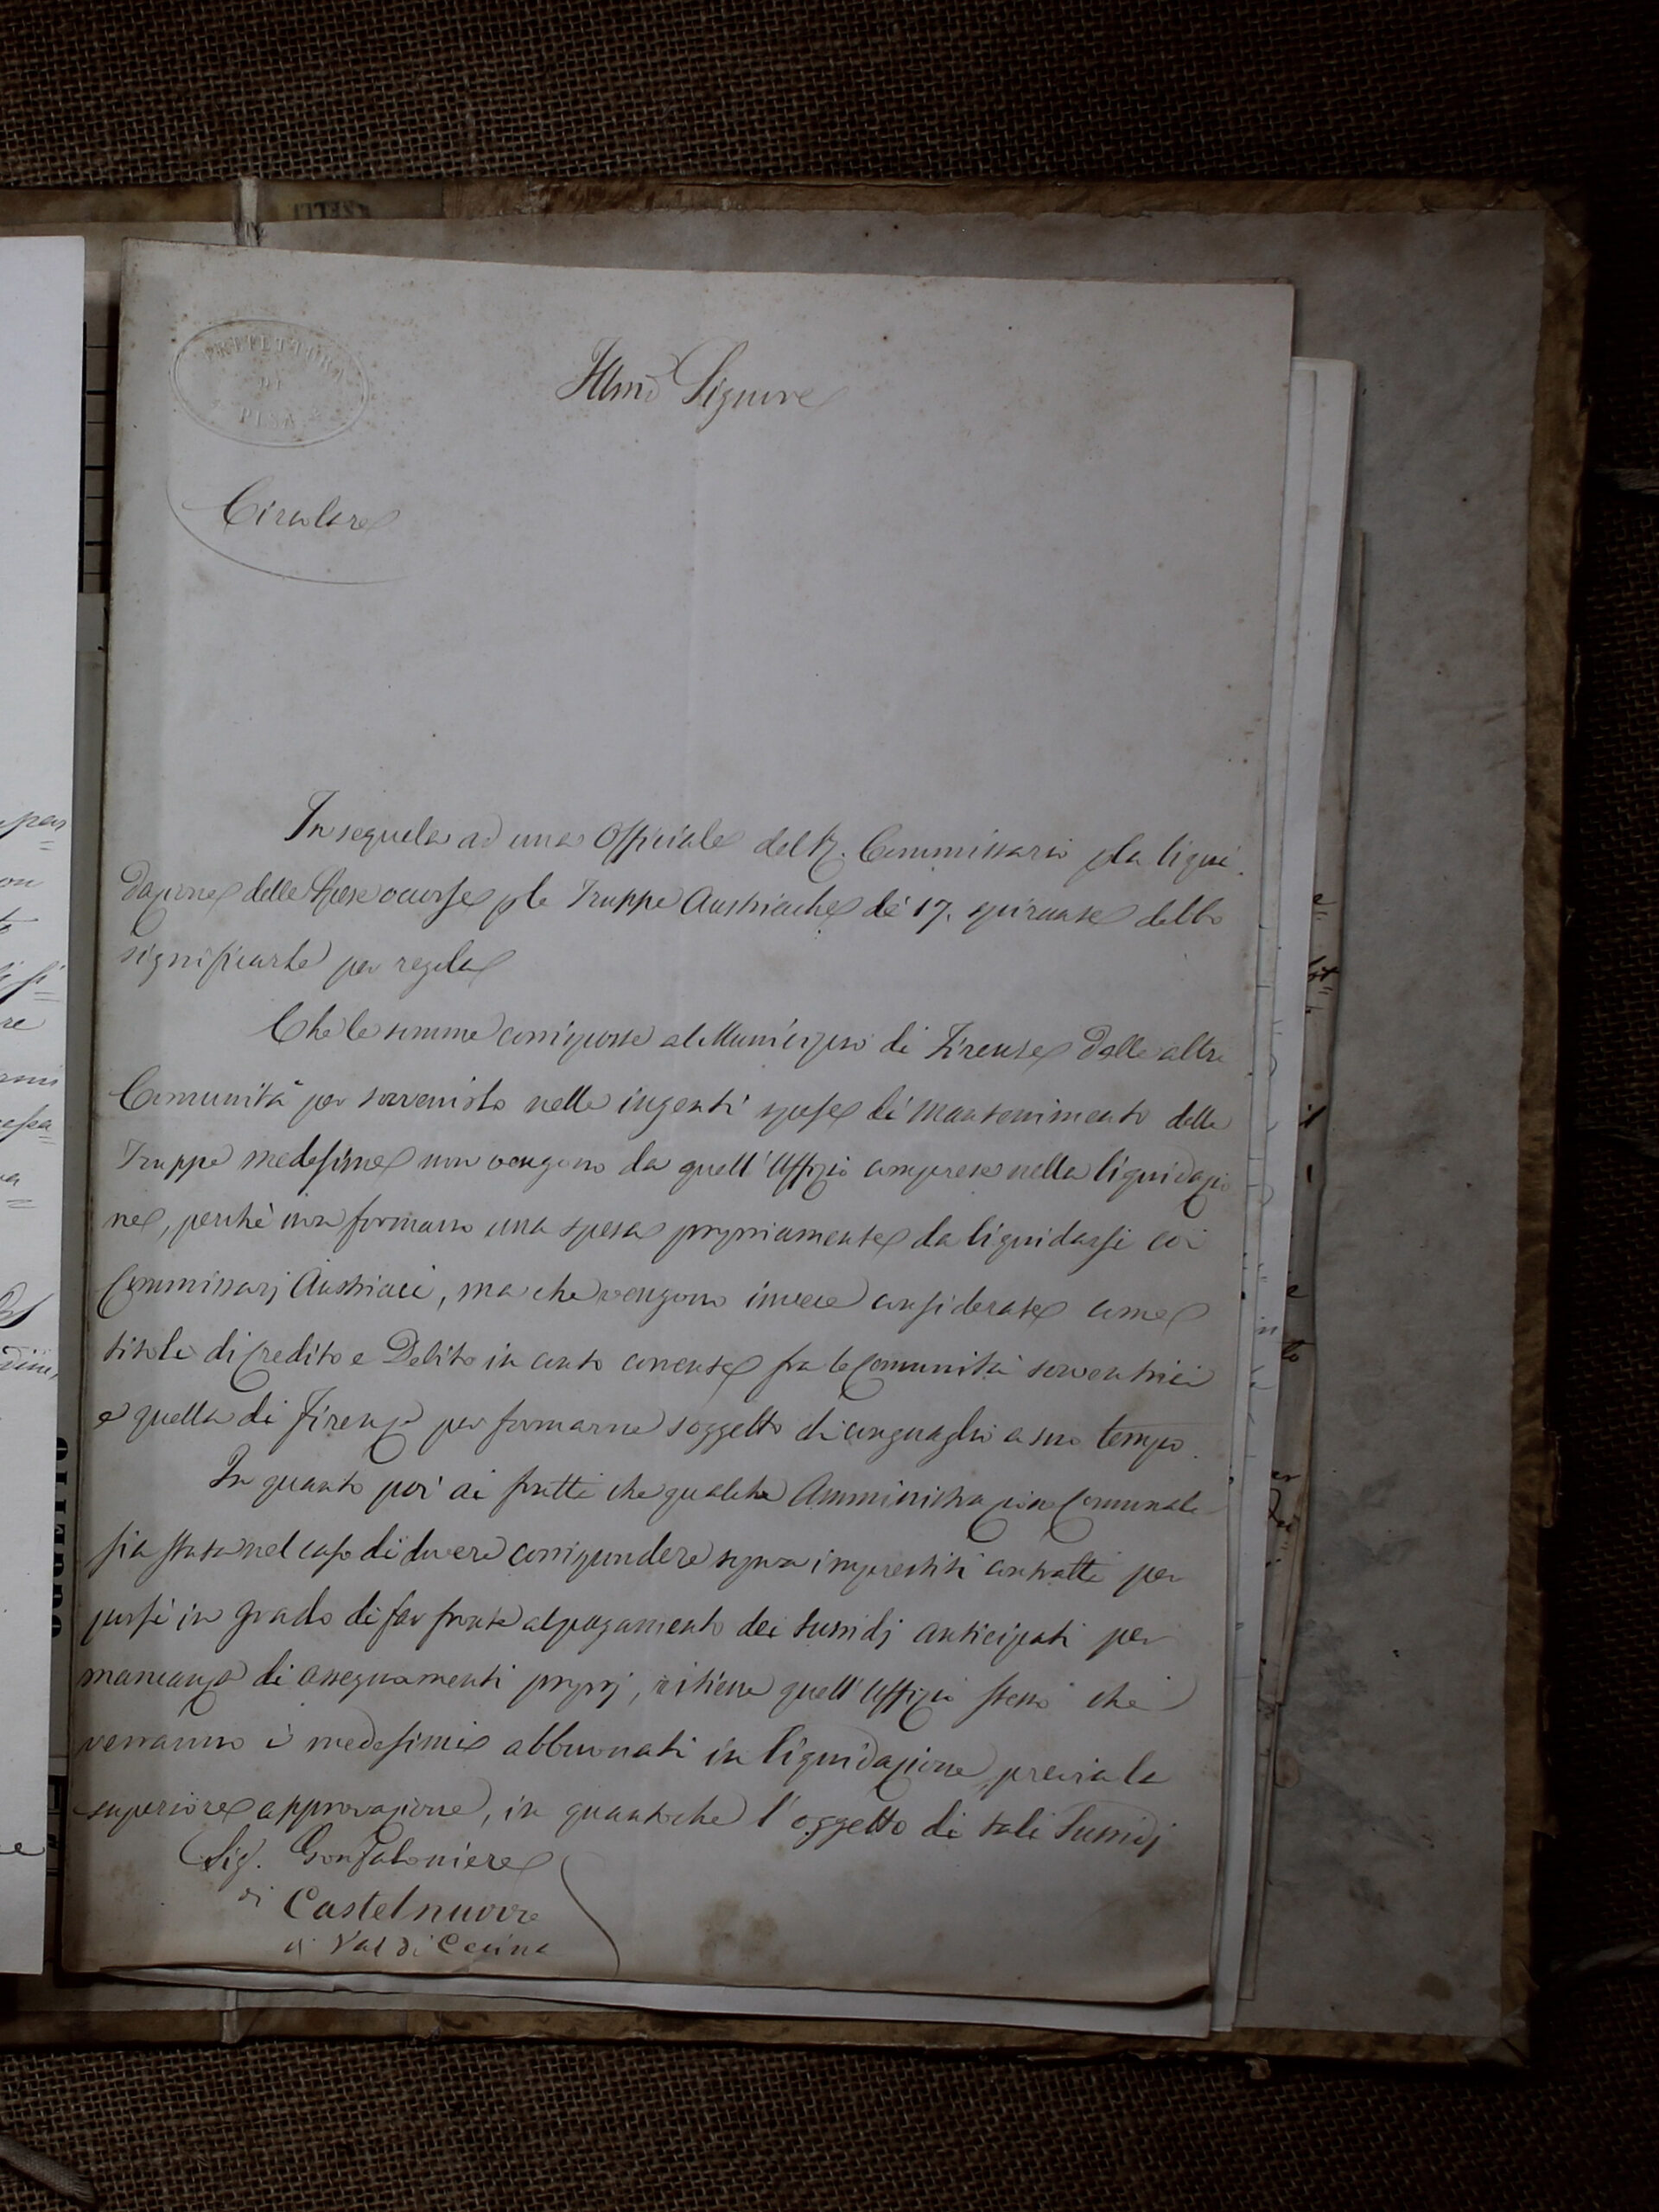 PREFETTURA
DI
PISA
Illmo Signore
Circolare
In sequela ad una Officiale del R. Commissario p la liqui
dazione delle Spese occorse p le Truppe Austriache de' 17. spirante debbo
significarle per regola
Che le somme corrisposte al Municipio di Firenze dalle altre
Comunità per sovvenirlo nelle ingenti spese di mantenimento delle
Truppe medesime non vengono da quell'Uffizio comprese nella liquidazio
ne, perchè non formano una spesa propriamente da liquidarsi coi
Commissarj Austriaci, ma che vengono invece considerate come
titoli di Credito e Debito in conto corrente fra le Comunità sovventrici
e quella di Firenze per formarne soggetto di conguaglio a suo tempo.
In quanto poi ai frutti che qualche Amministrazione Comunale
sia stata nel caso di dovere corrispondere sopra imprestiti contratti per
porsi in grado di far fronte al pagamento dei sussidj anticipati per
mancanza di assegnamenti proprj, ritiene quell'Uffizio stesso che
verranno i medesimi abbuonati in liquidazione, previa la
superiore approvazione, in quantochè l'oggetto di tali sussidj
Sig. Gonfaloniere
di Castelnuovo
di Val di Cecina